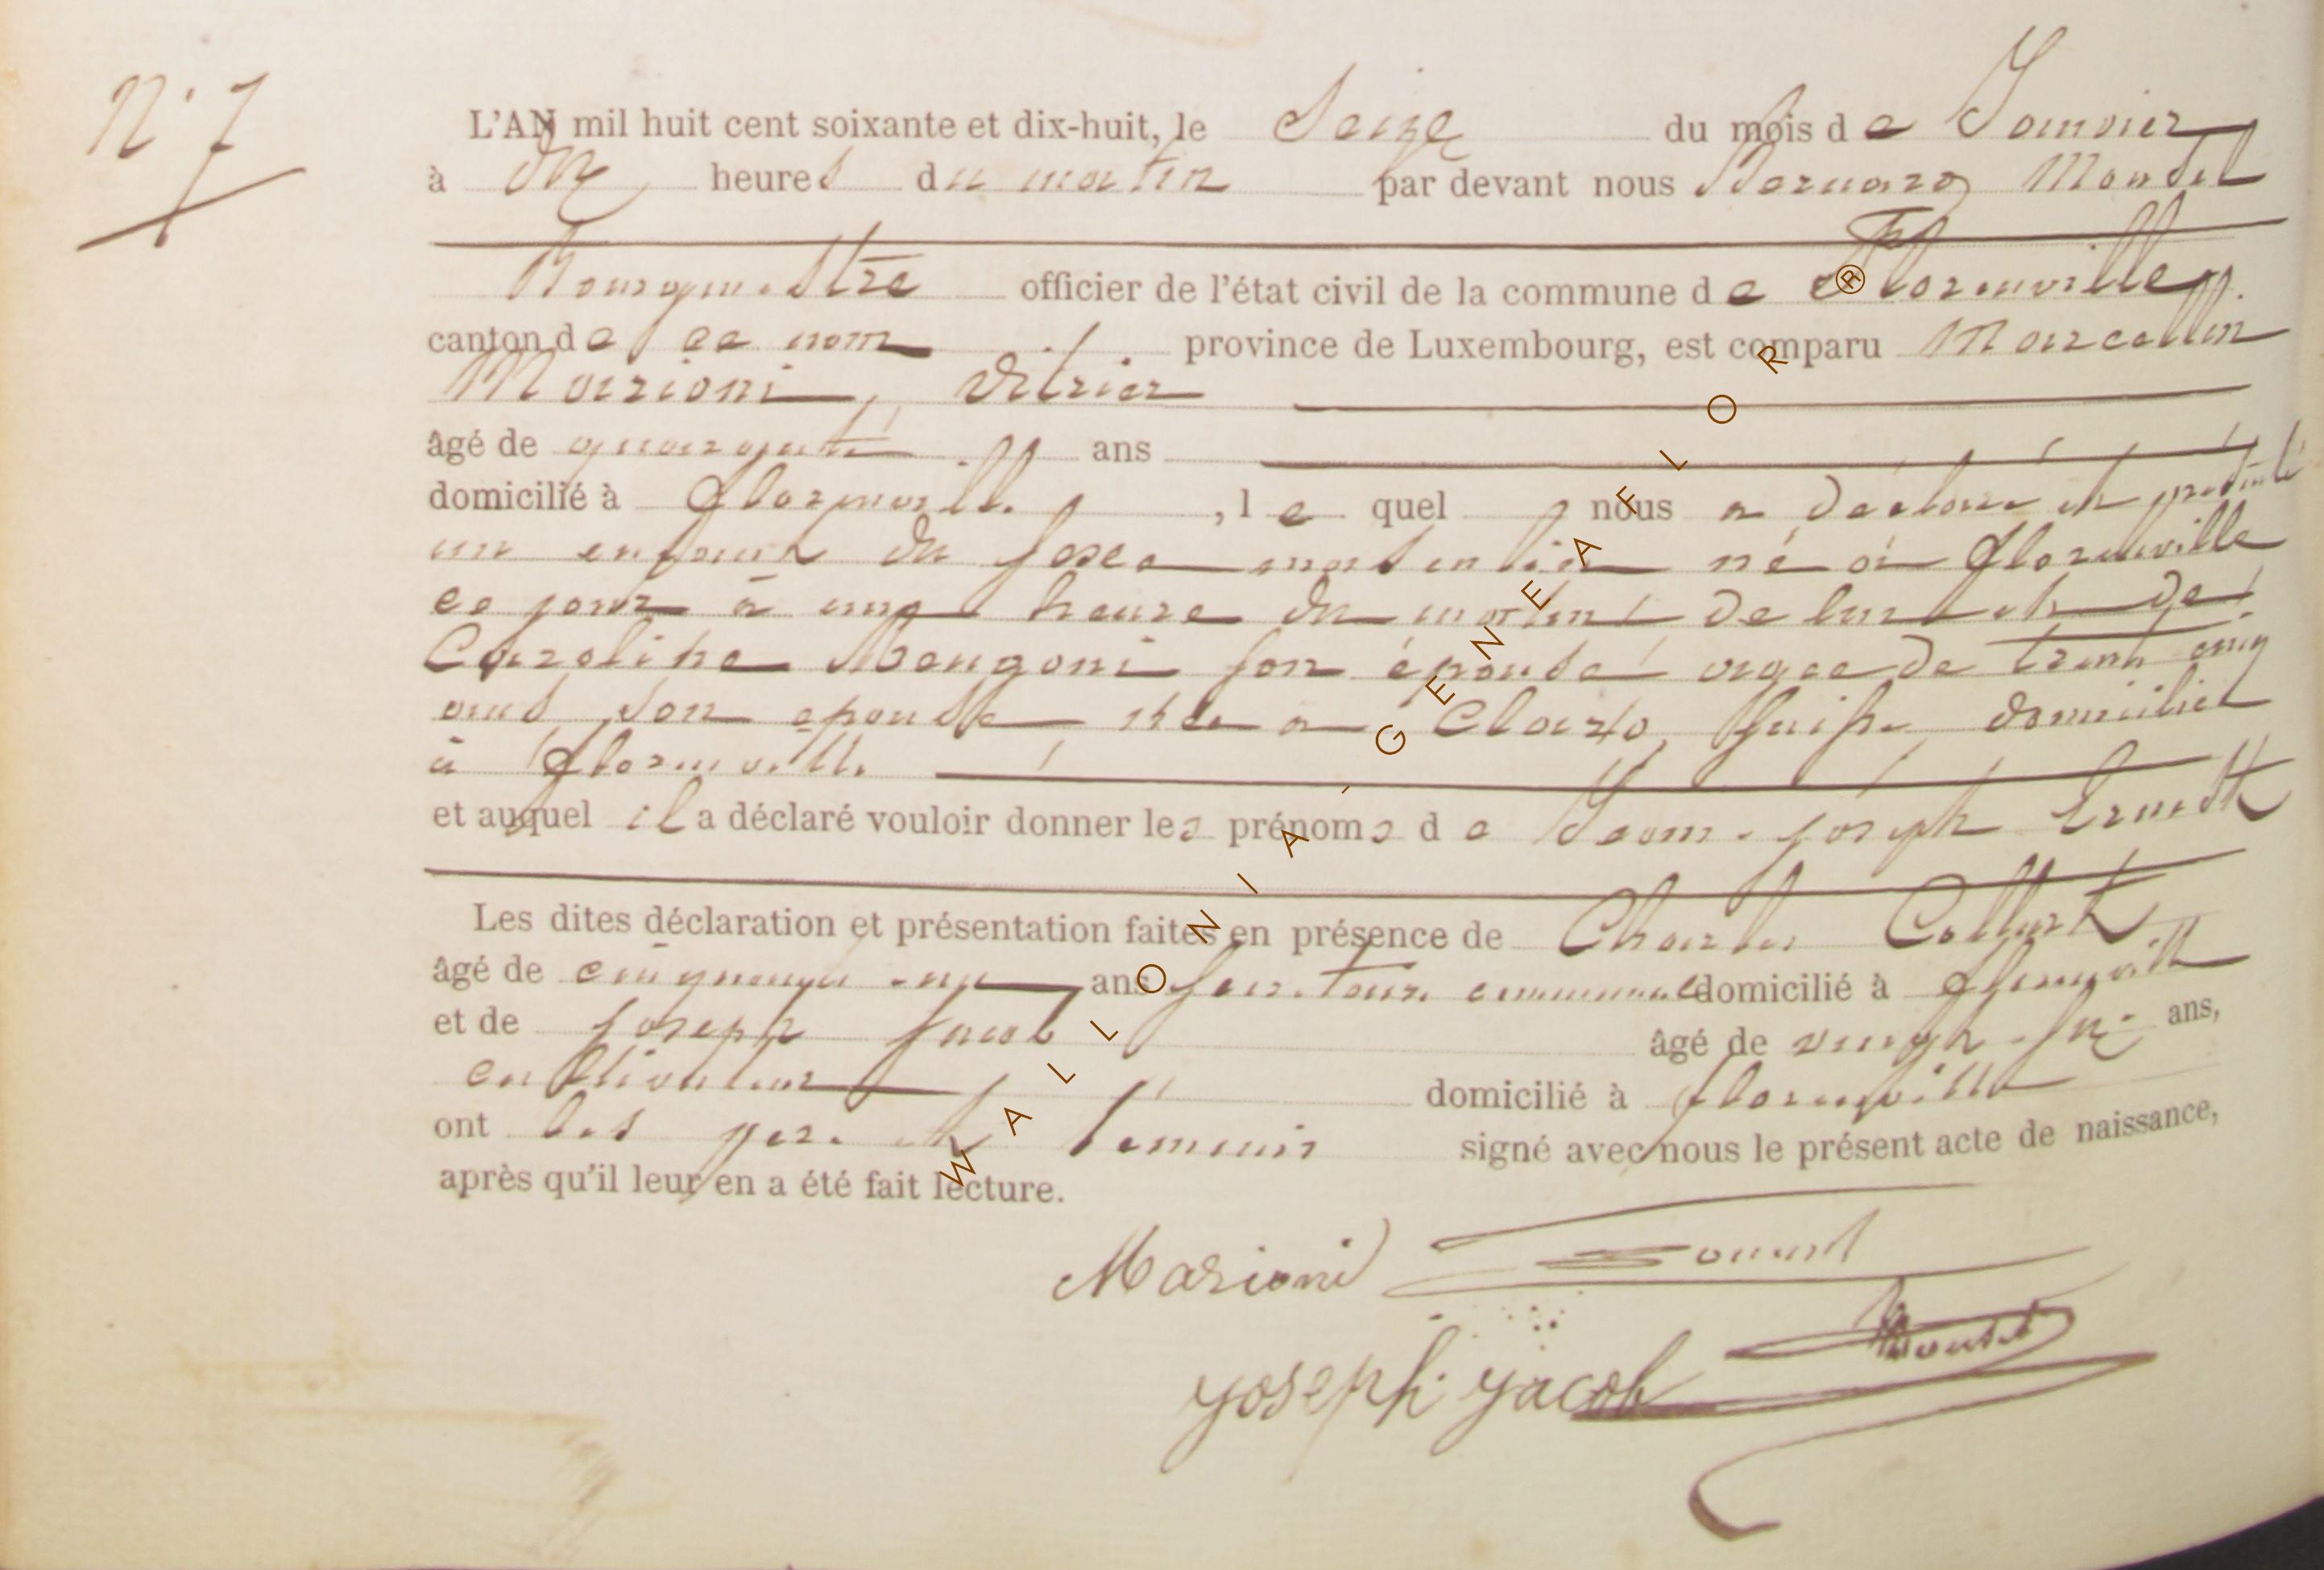 N° 7
L'AN mil huit cent soixante et dix-huit, le Seize du mois de Janvier
à dix heures du matin par devant nous Bernard Moudel
Bourgmestre officier de l'état civil de la commune de Florenville
canton de ce nom province de Luxembourg, est comparu Marcellin
Marioni, vitrier
âgé de quarante ans
domicilié à Florenville, lequel nous a déclaré et présenté
un enfant du sexe masculin né à Florenville
ce jour à une heure du matin de lui et de
Caroline Mengoni son épouse agee de trente cinq
ans son epouse née a Claro, Suisse domiciliés
à Florenville
et auquel il a déclaré vouloir donner les prénoms de Jean-Joseph Ernest
Les dites déclaration et présentation faites en présence de Charles
âgé de cinquante-un ans communal domicilié à Florenville
et de Joseph Jacob âgé de vingt-six ans,
cultivateur domicilié à Florenville
ont les père et témoins signé avec nous le présent acte de naissance,
après qu'il leur en a été fait lecture.
Marioni
Joseph Jacob
WALLONIA-GENEAFLOR®